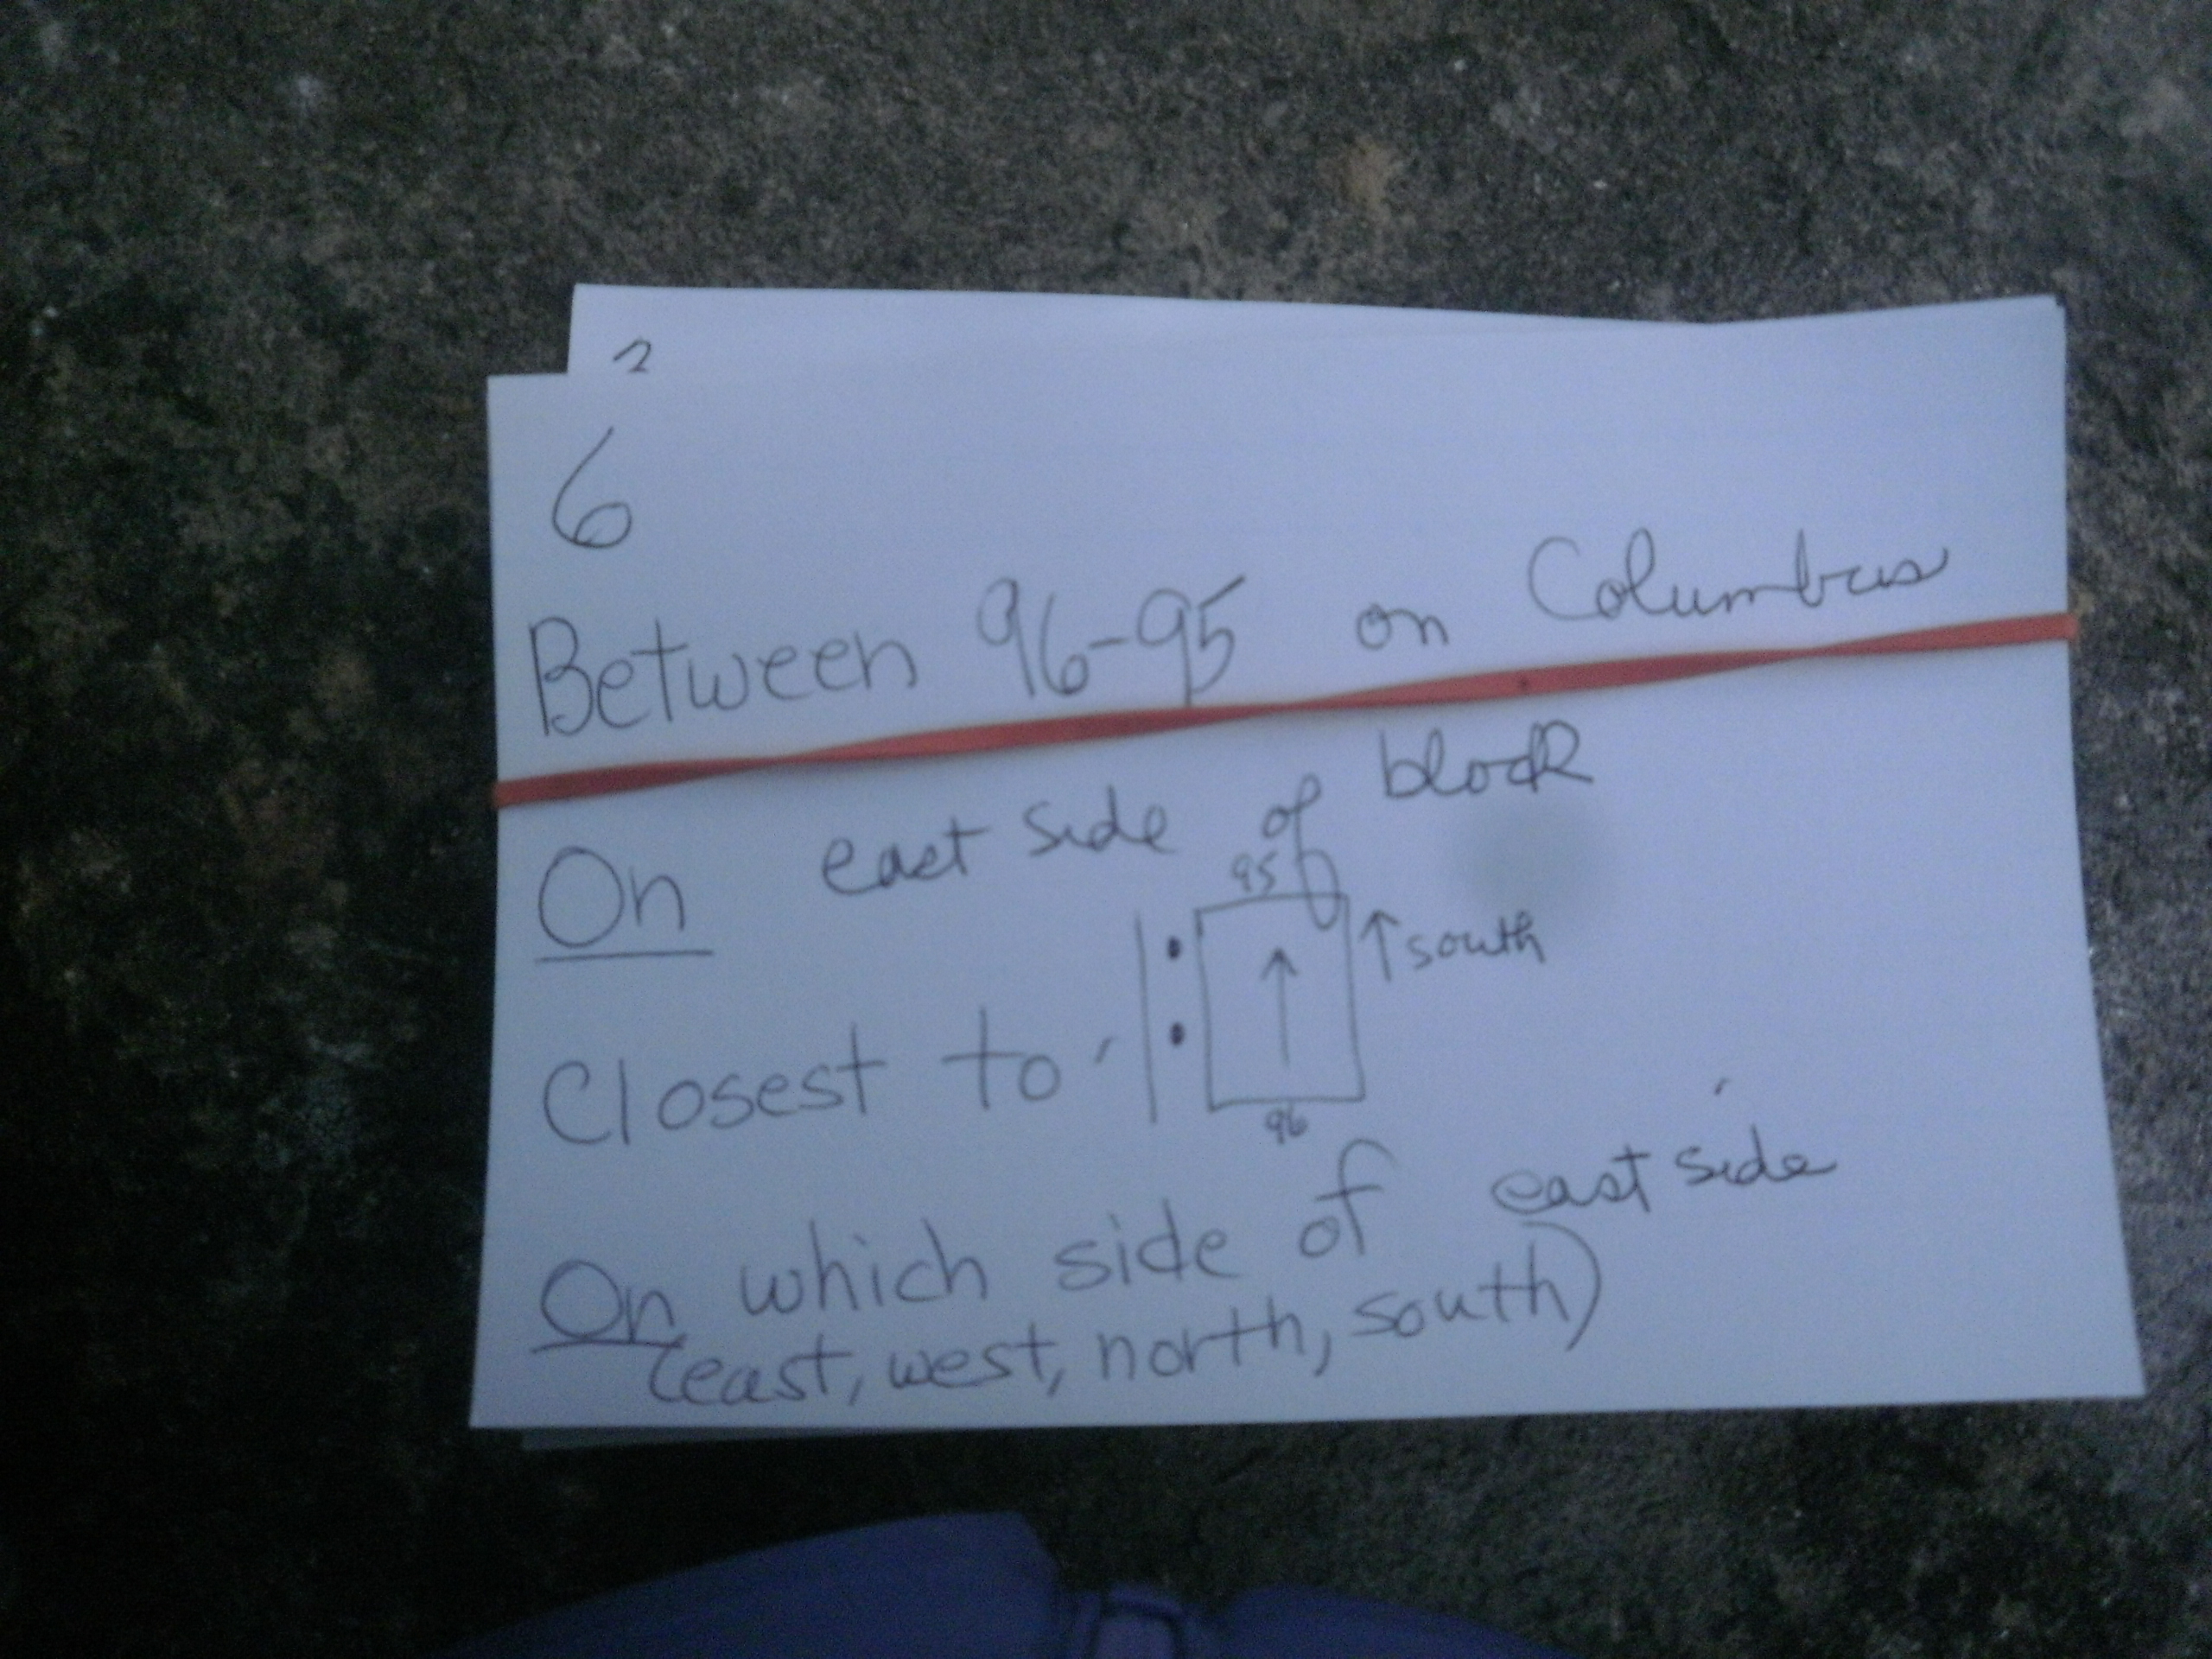 2
6
Between 96-95 on Columbus
On east side of block
95
↑ south
Closest to
96
On which side of east side
(east, west, north, south)